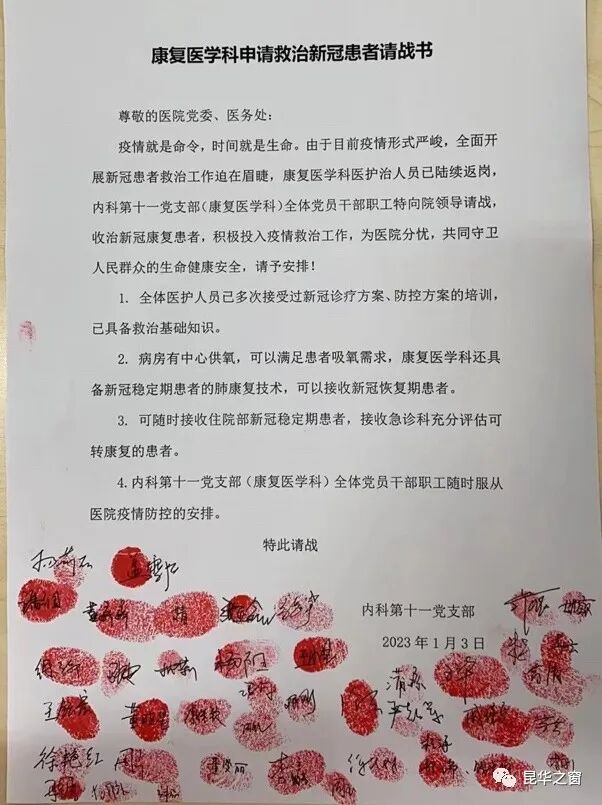 康复医学科申请救治新冠患者请战书
尊敬的医院党委、医务处：
疫情就是命令，时间就是生命。由于目前疫情形式严峻，全面开
展新冠患者救治工作迫在眉睫，康复医学科医护治人员已陆续返岗，
内科第十一党支部（康复医学科）全体党员干部职工特向院领导请战，
收治新冠康复患者，积极投入疫情救治工作，为医院分忧，共同守卫
人民群众的生命健康安全，请予安排！
1. 全体医护人员已多次接受过新冠诊疗方案、防控方案的培训，
已具备救治基础知识。
2. 病房有中心供氧，可以满足患者吸氧需求，康复医学科还具
备新冠稳定期患者的肺康复技术，可以接收新冠恢复期患者。
3. 可随时接收住院部新冠稳定期患者，接收急诊科充分评估可
转康复的患者。
4.内科第十一党支部（康复医学科）全体党员干部职工随时服从
医院疫情防控的安排。
特此请战
内科第十一党支部
2023年1月3日
杨阳
徐艳红
昆华之窗